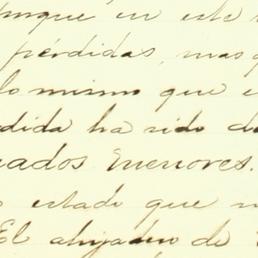 unque en este
pérdidas, mas
lo mismo que e
dida ha sido de
eados menores.
estado que
El ahijado de